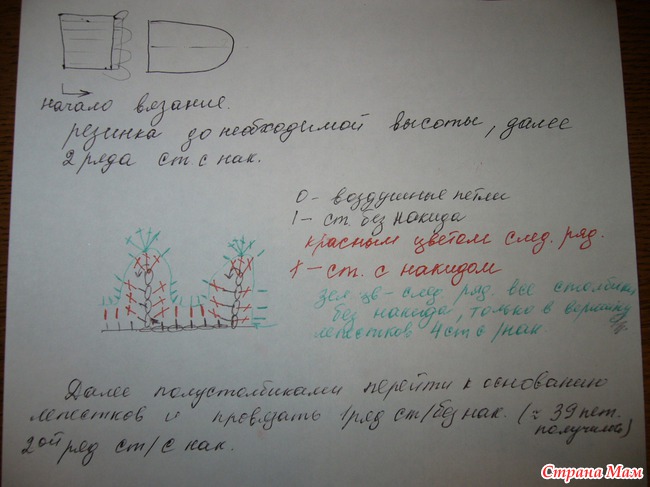 начало вязание.
резинка до необходимой высоты, далее
2 ряда ст с нак.
0 - воздушные петли
1 - ст. без накида
красным цветом след. ряд.
† - ст. с накидом
зел цв - след. ряд. все столбики
без накида, только в вершину
лепестков 4 ст с/нак
Далее полустолбиками перейти к основанию
лепестков и провязать 1 ряд ст/без нак. (≈ 39 пет.
получилось)
2ой ряд ст/с нак.
Страна Мам